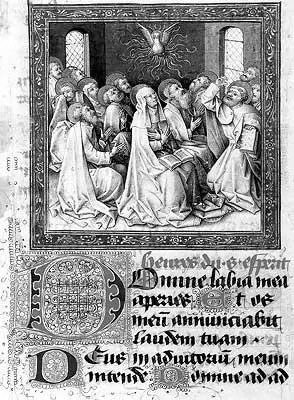 heures du s. esprit
Domine labia mea
aperies. Et os
meū annunciabit
laudem tuam.
Deus in adiutoriū meum
intende Domine ad ad